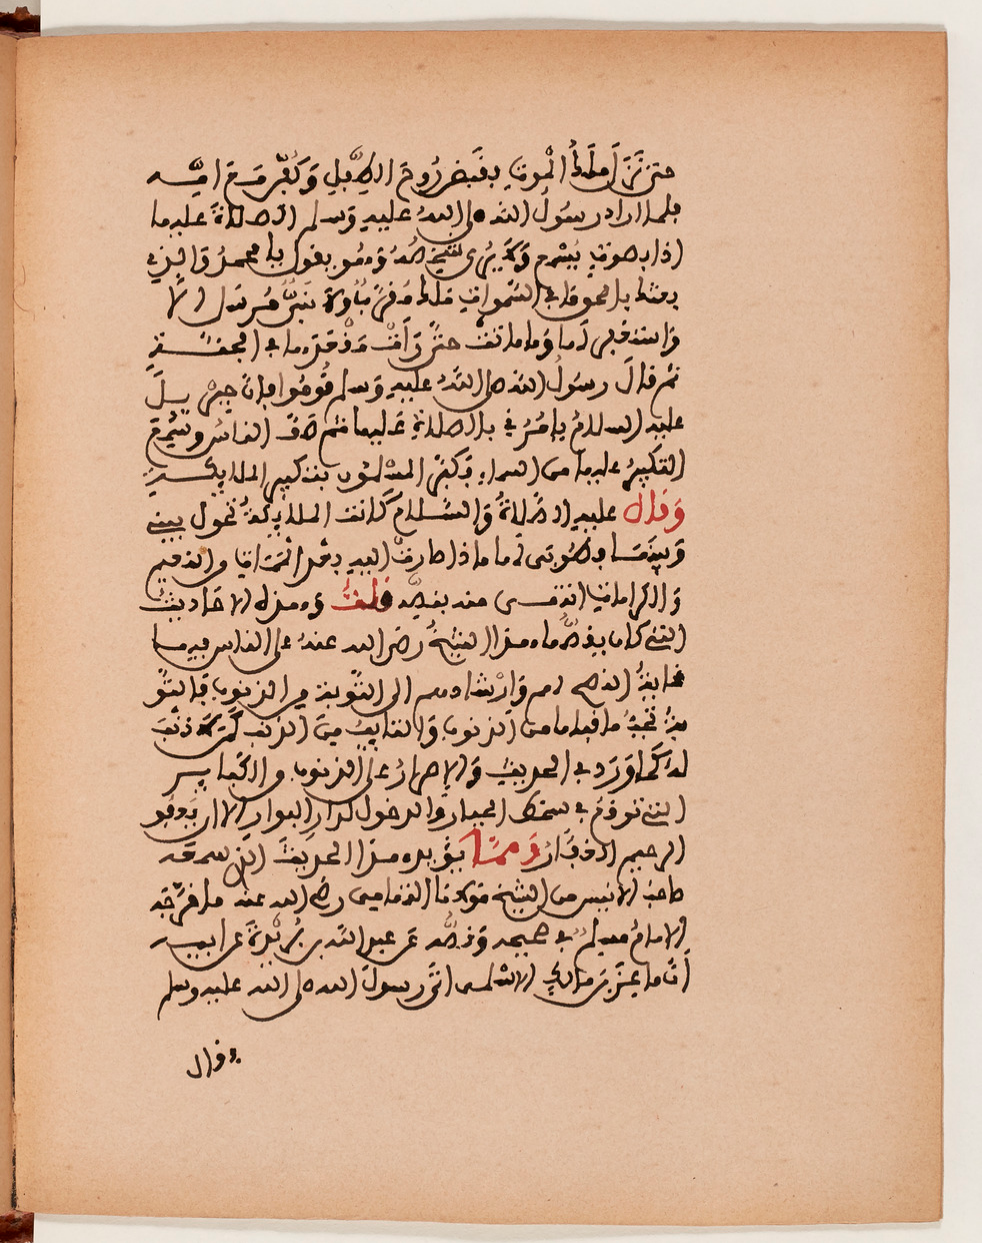 حتى نَزَلَ مَلَكُ الْمَوتِ فقَبَضَ رُوحَ الطِّفلِ وَكَفَّنَ مَريَمَ اُمِّـــه
فلما اراد رسُولُ الله صلى اللهُ عليهِ وَسلم الصلاةَ عليهما
اذا بصوتٍ يُسْمع وَلا يُرى شخصُهُ وَهُو يقول يا محمدُ وَالذي
بعثك بالحق ما في السَّموات مَلَك مُقرَّبٌ وَلا نَبيٌّ مُرسَل الا
وَاستغفر لَها وَما ماتت حتَّى رَأَتْ مَقعَدها في الجنَّـــة
ثم قالَ رسُولُ الله صلى اللهُ عليهِ وَسلم قُومُوا فإنَّ جبر يلَ
عليه السلامُ يامُرُني بالصلاةِ عَليهما ثم صفّ الناسُ وَسُمِعَ
التكبيرُ عليها من السماء فكبَّر المسْلمُون بتكبير الملايكــةِ
وَقال عليهِ الصَّلاةُ وَالسَّلام كانت الملايكةُ تحول بيني
وَبينَهَـا فصُوبى لها ماذا صارتْ اليه بعد المَمَات من النعيم
وَالكرامات انتهـى من بعضه قلتُ وَهذه الاحاديثُ
التي كان يقصُّها هذا الشيخُ رضي الله عنهُ على الناس فيهــا
غايةُ النصح لهم وَإرْشادهم الى التَّوبة من الذنوبِ فالتَّو
بةُ تجبُّ ما قبلها من الذنوبِ وَالتايبُ مِنَ الذنب كَمَن لا ذنْبَ
لهُ كَما وَرَد في الحديث وَالإصرارُ على الذنوب والكَبايـر
التي توقعُ في سخط الجبار وَالدخول لدار البوار الا ان يَعفو
الرحيم الغفَّارُ وَممَّا يقرب من هذا الحديثِ الذي سمعه
صاحبُ الانيس من الشيخ مَولانا التهامي رضي الله عنه ما خرَّجه
الامامُ مسلمٌ في صحيحه وَنصُّه عَن عبد الله بن بُرَيْدةَ عن ابيـه
أنَّ ماعِزَ بنَ مالكٍ الاسْلمـى اتَى رسولَ الله صلى الله عليه وسلم
فقال